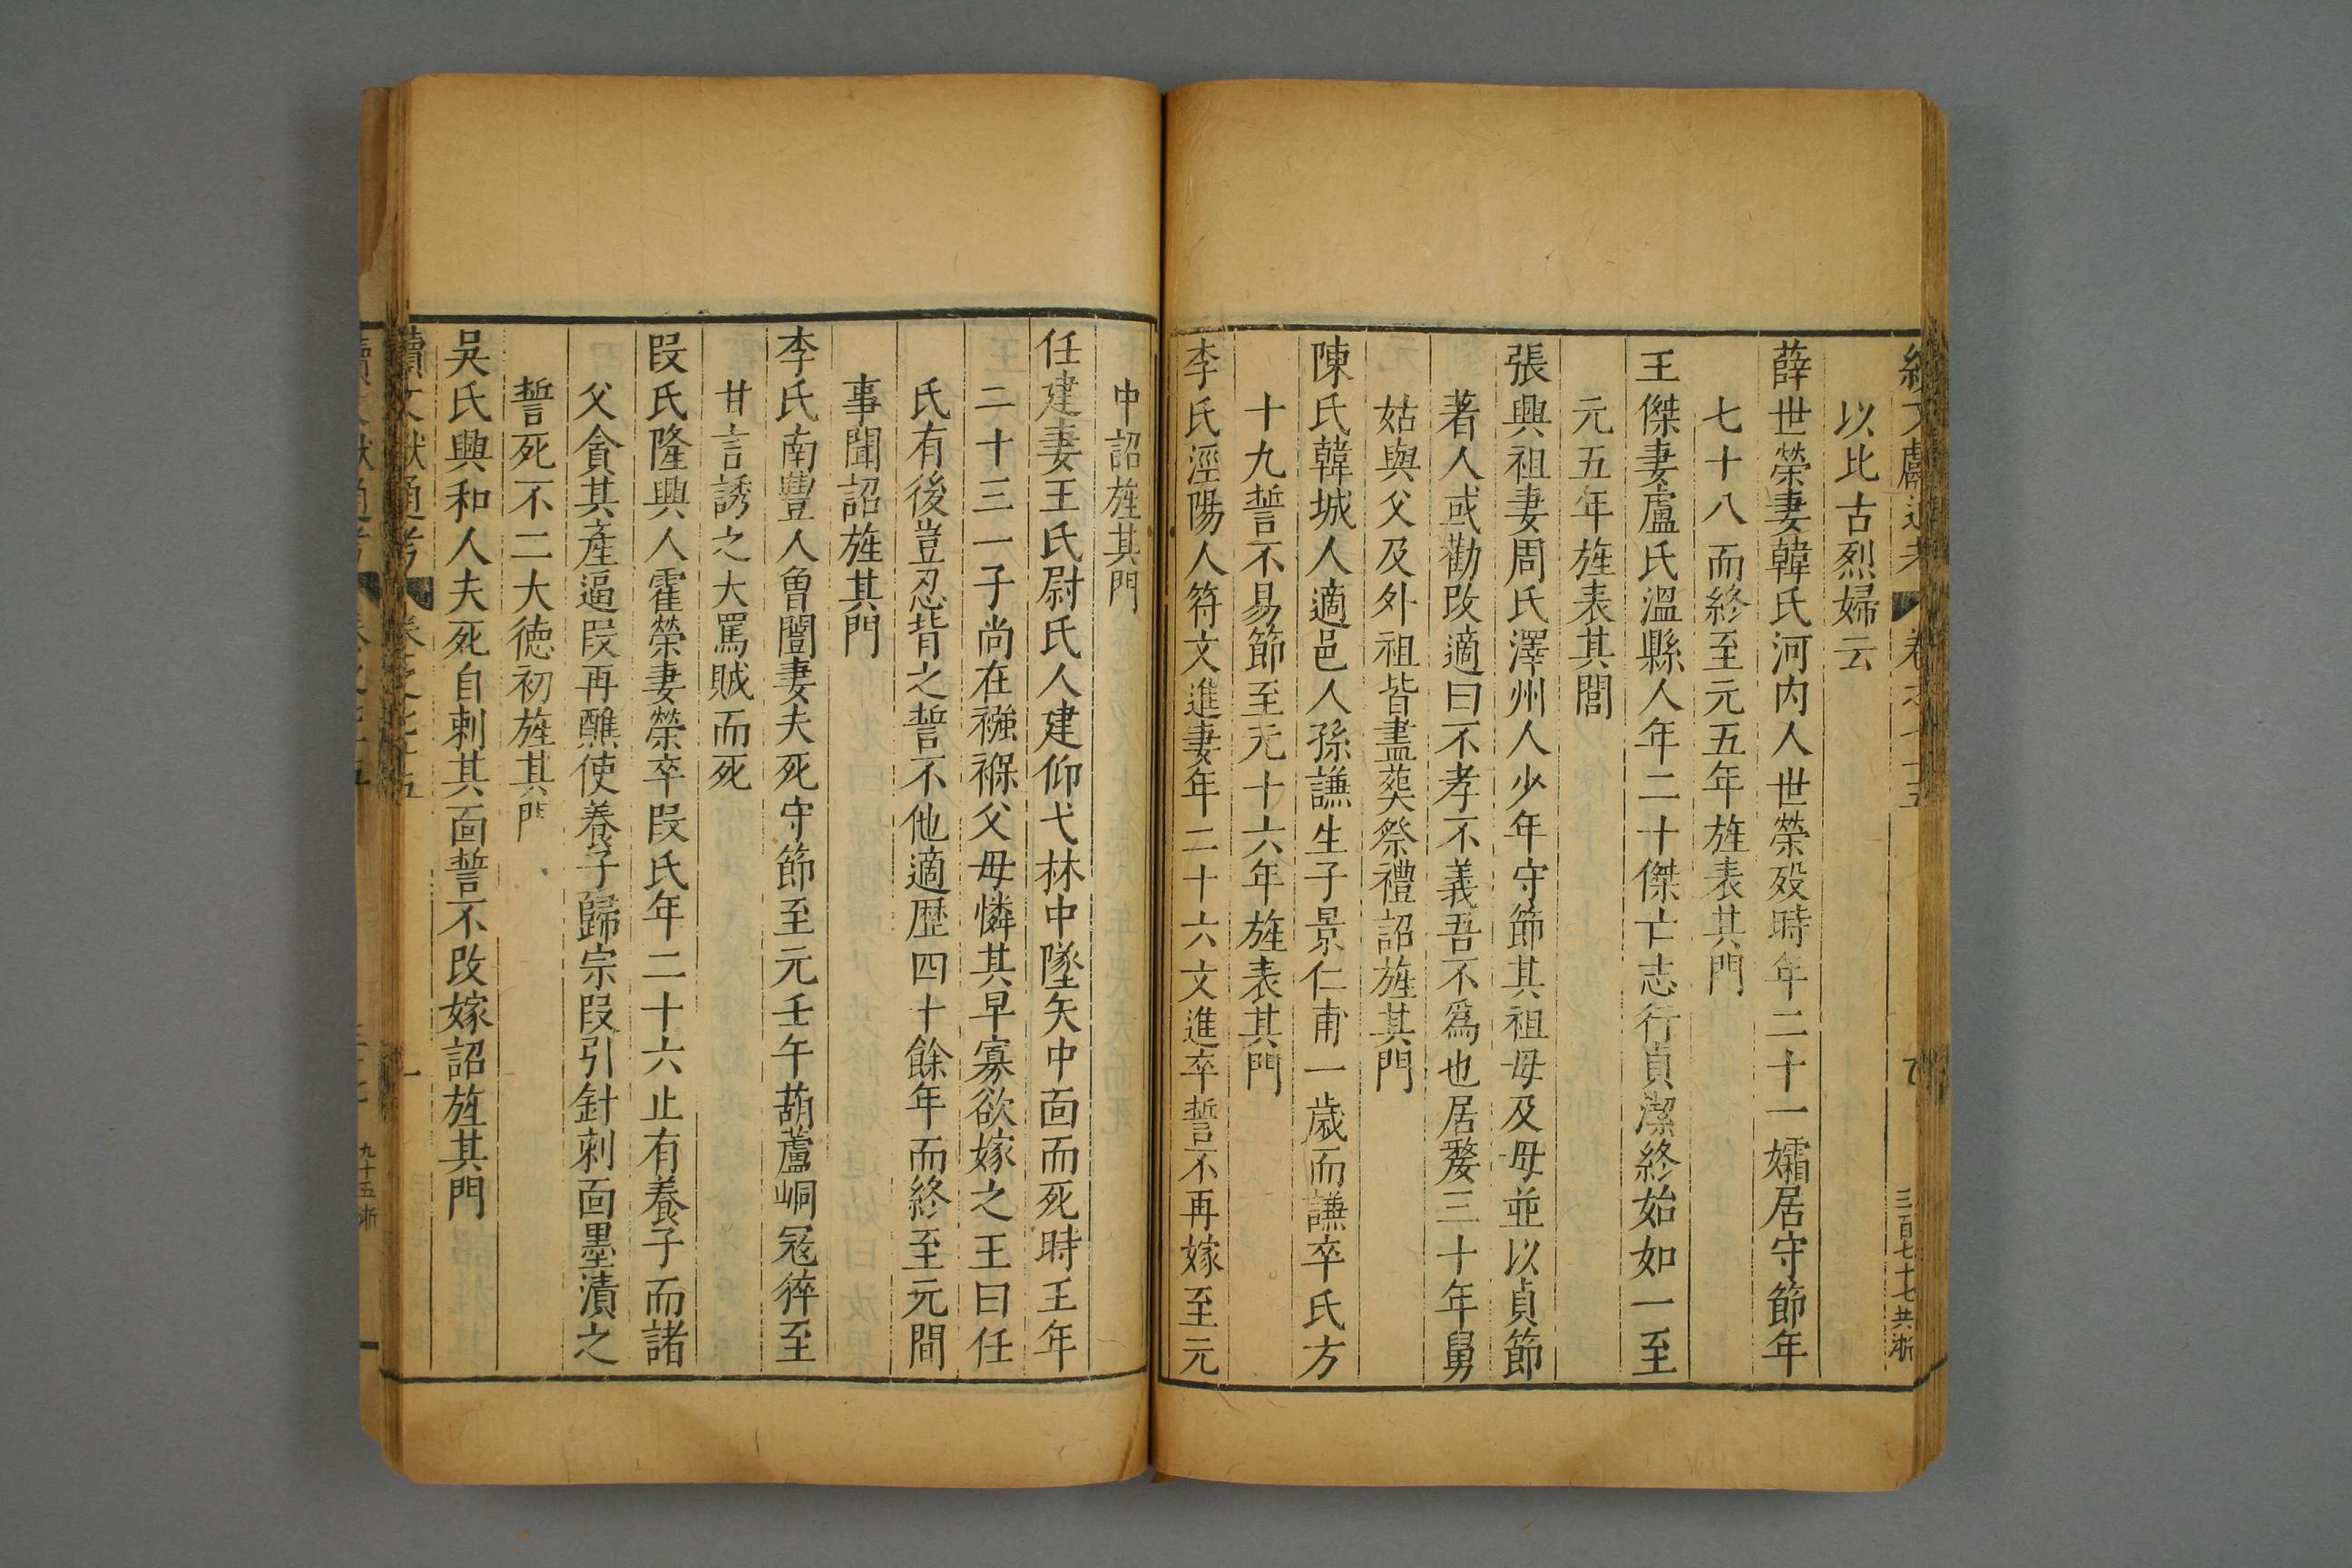 續文獻通考 卷之七十五 三百七十七 共浙
以比古烈婦云
薛世榮妻韓氏河内人世榮歿時年二十一孀居守節年
七十八而終至元五年旌表其門
王傑妻盧氏溫縣人年二十傑亡志行貞潔終始如一至
元五年旌表其閭
張興祖妻周氏澤州人少年守節其祖母及母並以貞節
著人或勸改適曰不孝不義吾不爲也居嫠三十年舅
姑與父及外祖皆盡葬祭禮詔旌其門
陳氏韓城人適邑人孫謙生子景仁甫一歲而謙卒氏方
十九誓不易節至元十六年旌表其門
李氏涇陽人符文進妻年二十六文進卒誓不再嫁至元
中詔旌其門
任建妻王氏尉氏人建仰弋林中墜矢中面而死時王年
二十三一子尚在襁褓父母憐其早寡欲嫁之王曰任
氏有後豈忍背之誓不他適歷四十餘年而終至元間
事聞詔旌其門
李氏南豐人魯闓妻夫死守節至元壬午葫蘆峒冦猝至
甘言誘之大罵賊而死
段氏隆興人霍榮妻榮卒段氏年二十六止有養子而諸
父貪其產逼段再醮使養子歸宗段引針刺面墨漬之
誓死不二大德初旌其門
吳氏興和人夫死自刺其面誓不改嫁詔旌其門
續文獻通考 卷之七十五
九十五 浙